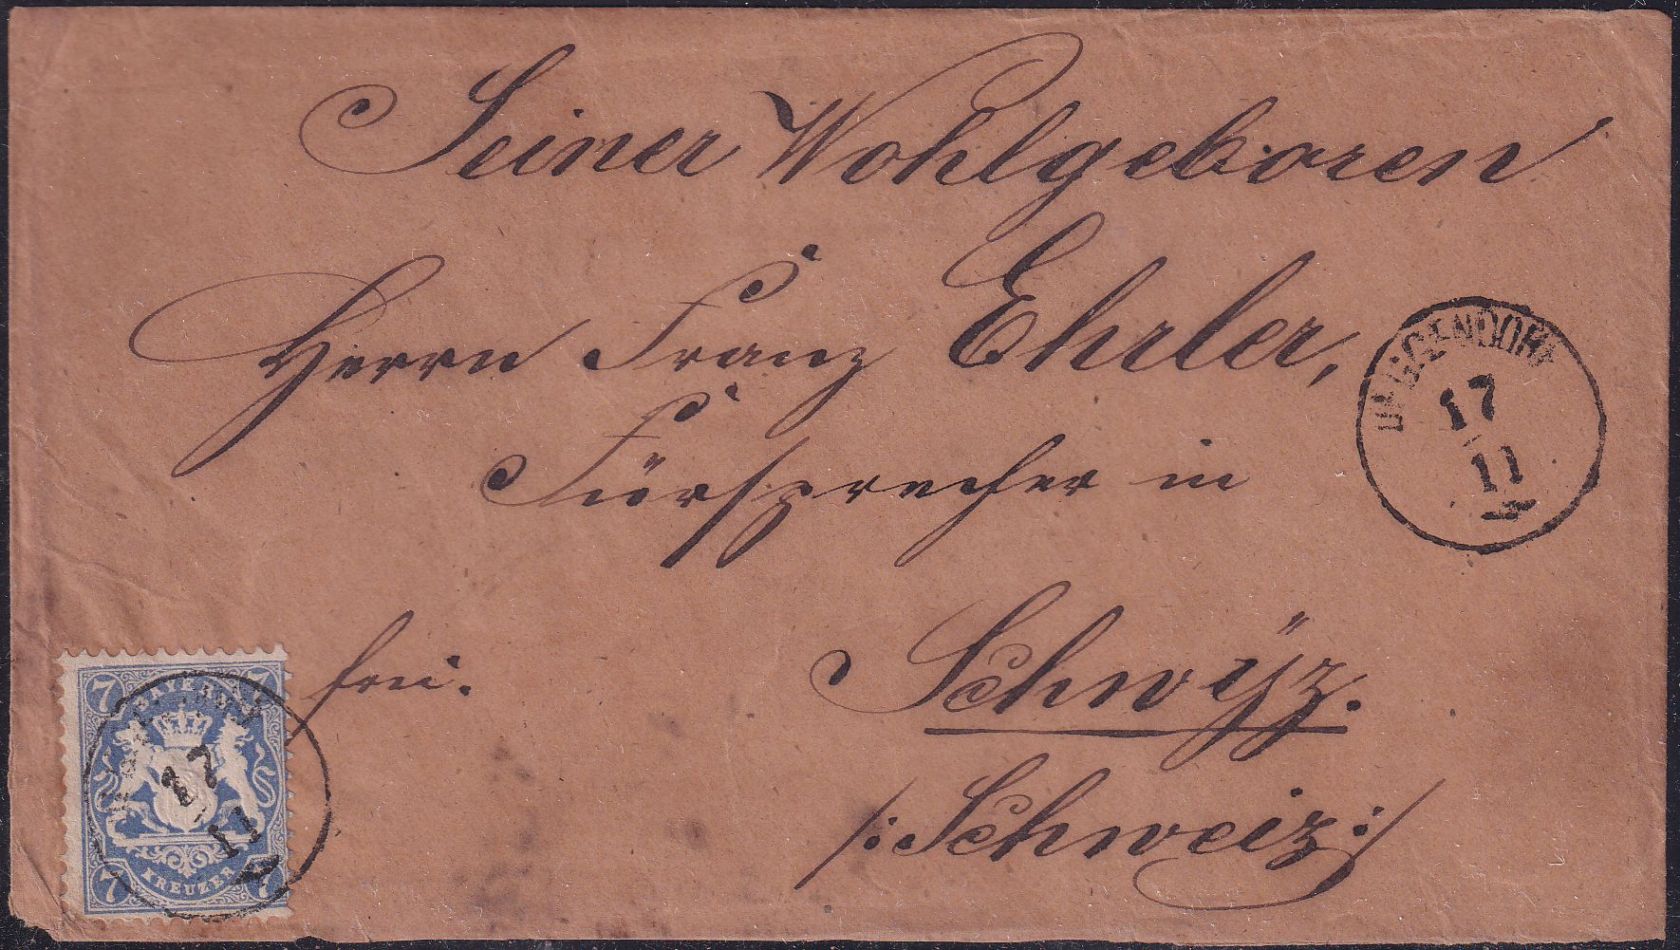 Seiner Wohlgeboren
Herrn Franz Ehrler,
Fürsprecher in
Schwÿz.
/: Schweiz :/
frei.
DEGGENDORF
17
11
7 BAYERN 7
17
11
7 KREUZER 7